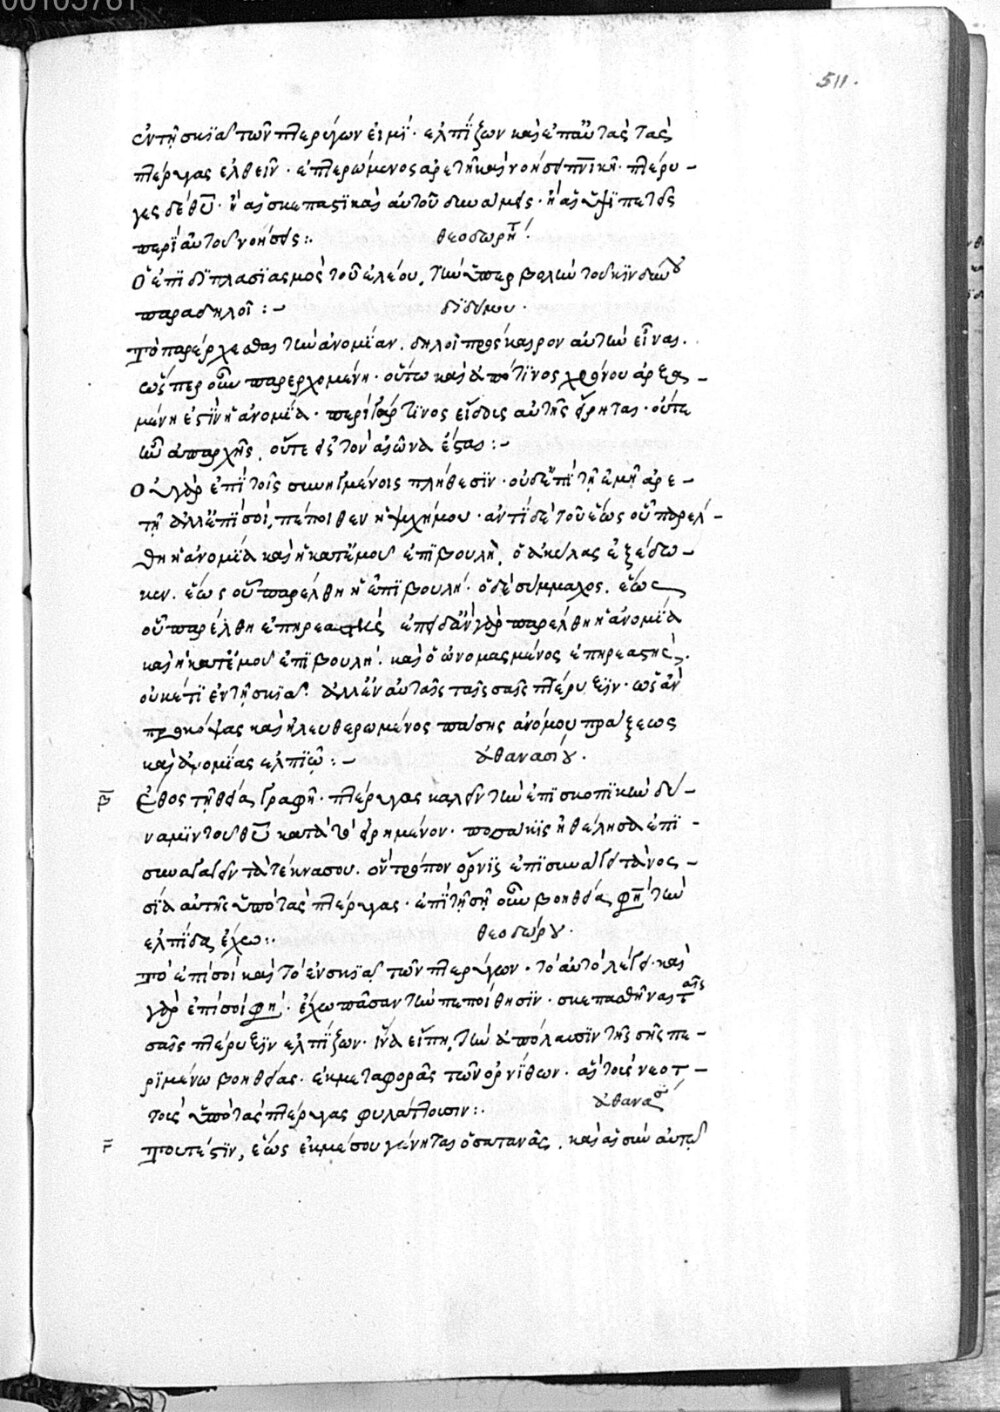 00105761
511.
ἐν τῇ σκιᾷ τῶν πτερύγων εἰμί· ἐλπίζων καὶ ἐπ' αὐτὰς τὰς
πτέρυγας ἐλθεῖν· ἐπτερωμένος ἀρετῇ καὶ νοήσει πνικῇ· πτέρυ-
γες δὲ θυ· ἢ αἱ σκεπαστικαὶ αὐτοῦ δυνάμεις· ἢ αἱ ὑψιπετεῖς
περὶ αὐτοῦ νοήσεις:. θεοδωρήτ
Ὁ ἐπιδιπλασιασμὸς τοῦ ἐλέου, τὴν ὑπερβολὴν τοῦ κινδύνου
παραδηλοῖ:- διδύμου·
Τὸ παρέρχεσθαι τὴν ἀνομίαν, δηλοῖ πρόσκαιρον αὐτὴν εἶναι.
ὥσπερ οὖν παρερχομένη· οὕτω καὶ ἀπό τινος χρόνου ἀρξα-
μένη ἐστὶν ἡ ἀνομία· περὶ γάρ τινος εἶδους αὐτῆς εἴρηται· οὔτε
ἦν ἀπαρχῆς, οὔτε εἰς τὸν αἰῶνα ἔσται:-
Οὐ γὰρ ἐπὶ τοῖς συνηγμένοις πλήθεσιν· οὐδ' ἐπὶ τῇ ἐμῇ ἀρε-
τῇ ἀλλ' ἐπὶ σοὶ, πέποιθεν ἡ ψυχή μου· ἀντὶ δὲ τοῦ ἕως οὗ παρέλ-
θη ἡ ἀνομία καὶ ἡ κατ' ἐμοῦ ἐπιβουλή, ὁ ἀκύλας ἐξέδω-
κεν. ἕως οὗ παρέλθη ἡ ἐπιβουλή· ὁ δὲ σύμμαχος, ἕως
οὗ παρέλθη ἐπηρεαστής ἐπειδὰν γὰρ παρέλθη ἡ ἀνομία
καὶ ἡ κατ' ἐμοῦ ἐπιβουλή· καὶ ὁ ὠνομασμένος ἐπηρεαστής,
οὐκέτι ἐν τῇ σκιᾷ· ἀλλ' ἐν αὐταῖς ταῖς σαῖς πτέρυξιν· ὡς ἂν
προκόψας καὶ ἠλευθερωμένος πάσης ἀνόμου πράξεως
καὶ ἀνομίας ἐλπιῶ:- ἀθανασίου·
β Ἔθος τῇ θείᾳ γραφῇ· πτέρυγας καλεῖν τὴν ἐπισκοπικὴν δύ-
ναμιν τοῦ θυ κατὰ τὸ εἰρημένον· ποσάκις ἠθέλησα ἐπι-
συναγαγεῖν τὰ τέκνα σου. ὃν τρόπον ὄρνις ἐπισυνάγει τὰ νοσ-
σία αὐτῆς ὑπὸ τὰς πτέρυγας· ἐπὶ τῇ σῇ οὖν βοηθείᾳ φη τὴν
ἐλπίδα ἔχω:· θεοδώρου·
Τὸ ἐπὶ σοὶ καὶ τὸ ἐν σκιᾷ τῶν πτερύγων· τὸ αὐτὸ λέγει· καὶ
γὰρ ἐπὶ σοί φη· ἔχω πᾶσαν τὴν πεποίθησιν· σκεπασθῆναι ταῖς
σαῖς πτέρυξιν ἐλπίζων· ἵνα εἴπῃ, τὴν ἀπόλαυσιν τῆς σῆς πε-
ριμένω βοηθείας· ἐκ μεταφορᾶς τῶν ὀρνίθων· αἳ τοὺς νεοτ-
τοὺς ὑπὸ τὰς πτέρυγας φυλάττουσιν:· ἀθανασ
γ Τουτέστιν, ἕως ἐκ μέσου γένηται ὁ σατανᾶς, καὶ αἱ σὺν αὐτῷ